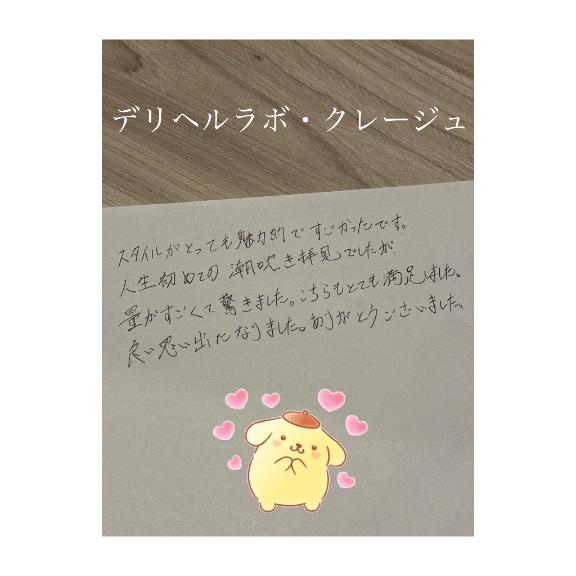 デリヘルラボ・クレージュ
スタイルがとっても魅力的ですごかったです。
人生初めての潮吹き拝見でしたが
量がすごくて驚きました。こちらもとても満足しました。
良い思い出になりました。ありがとうございました。